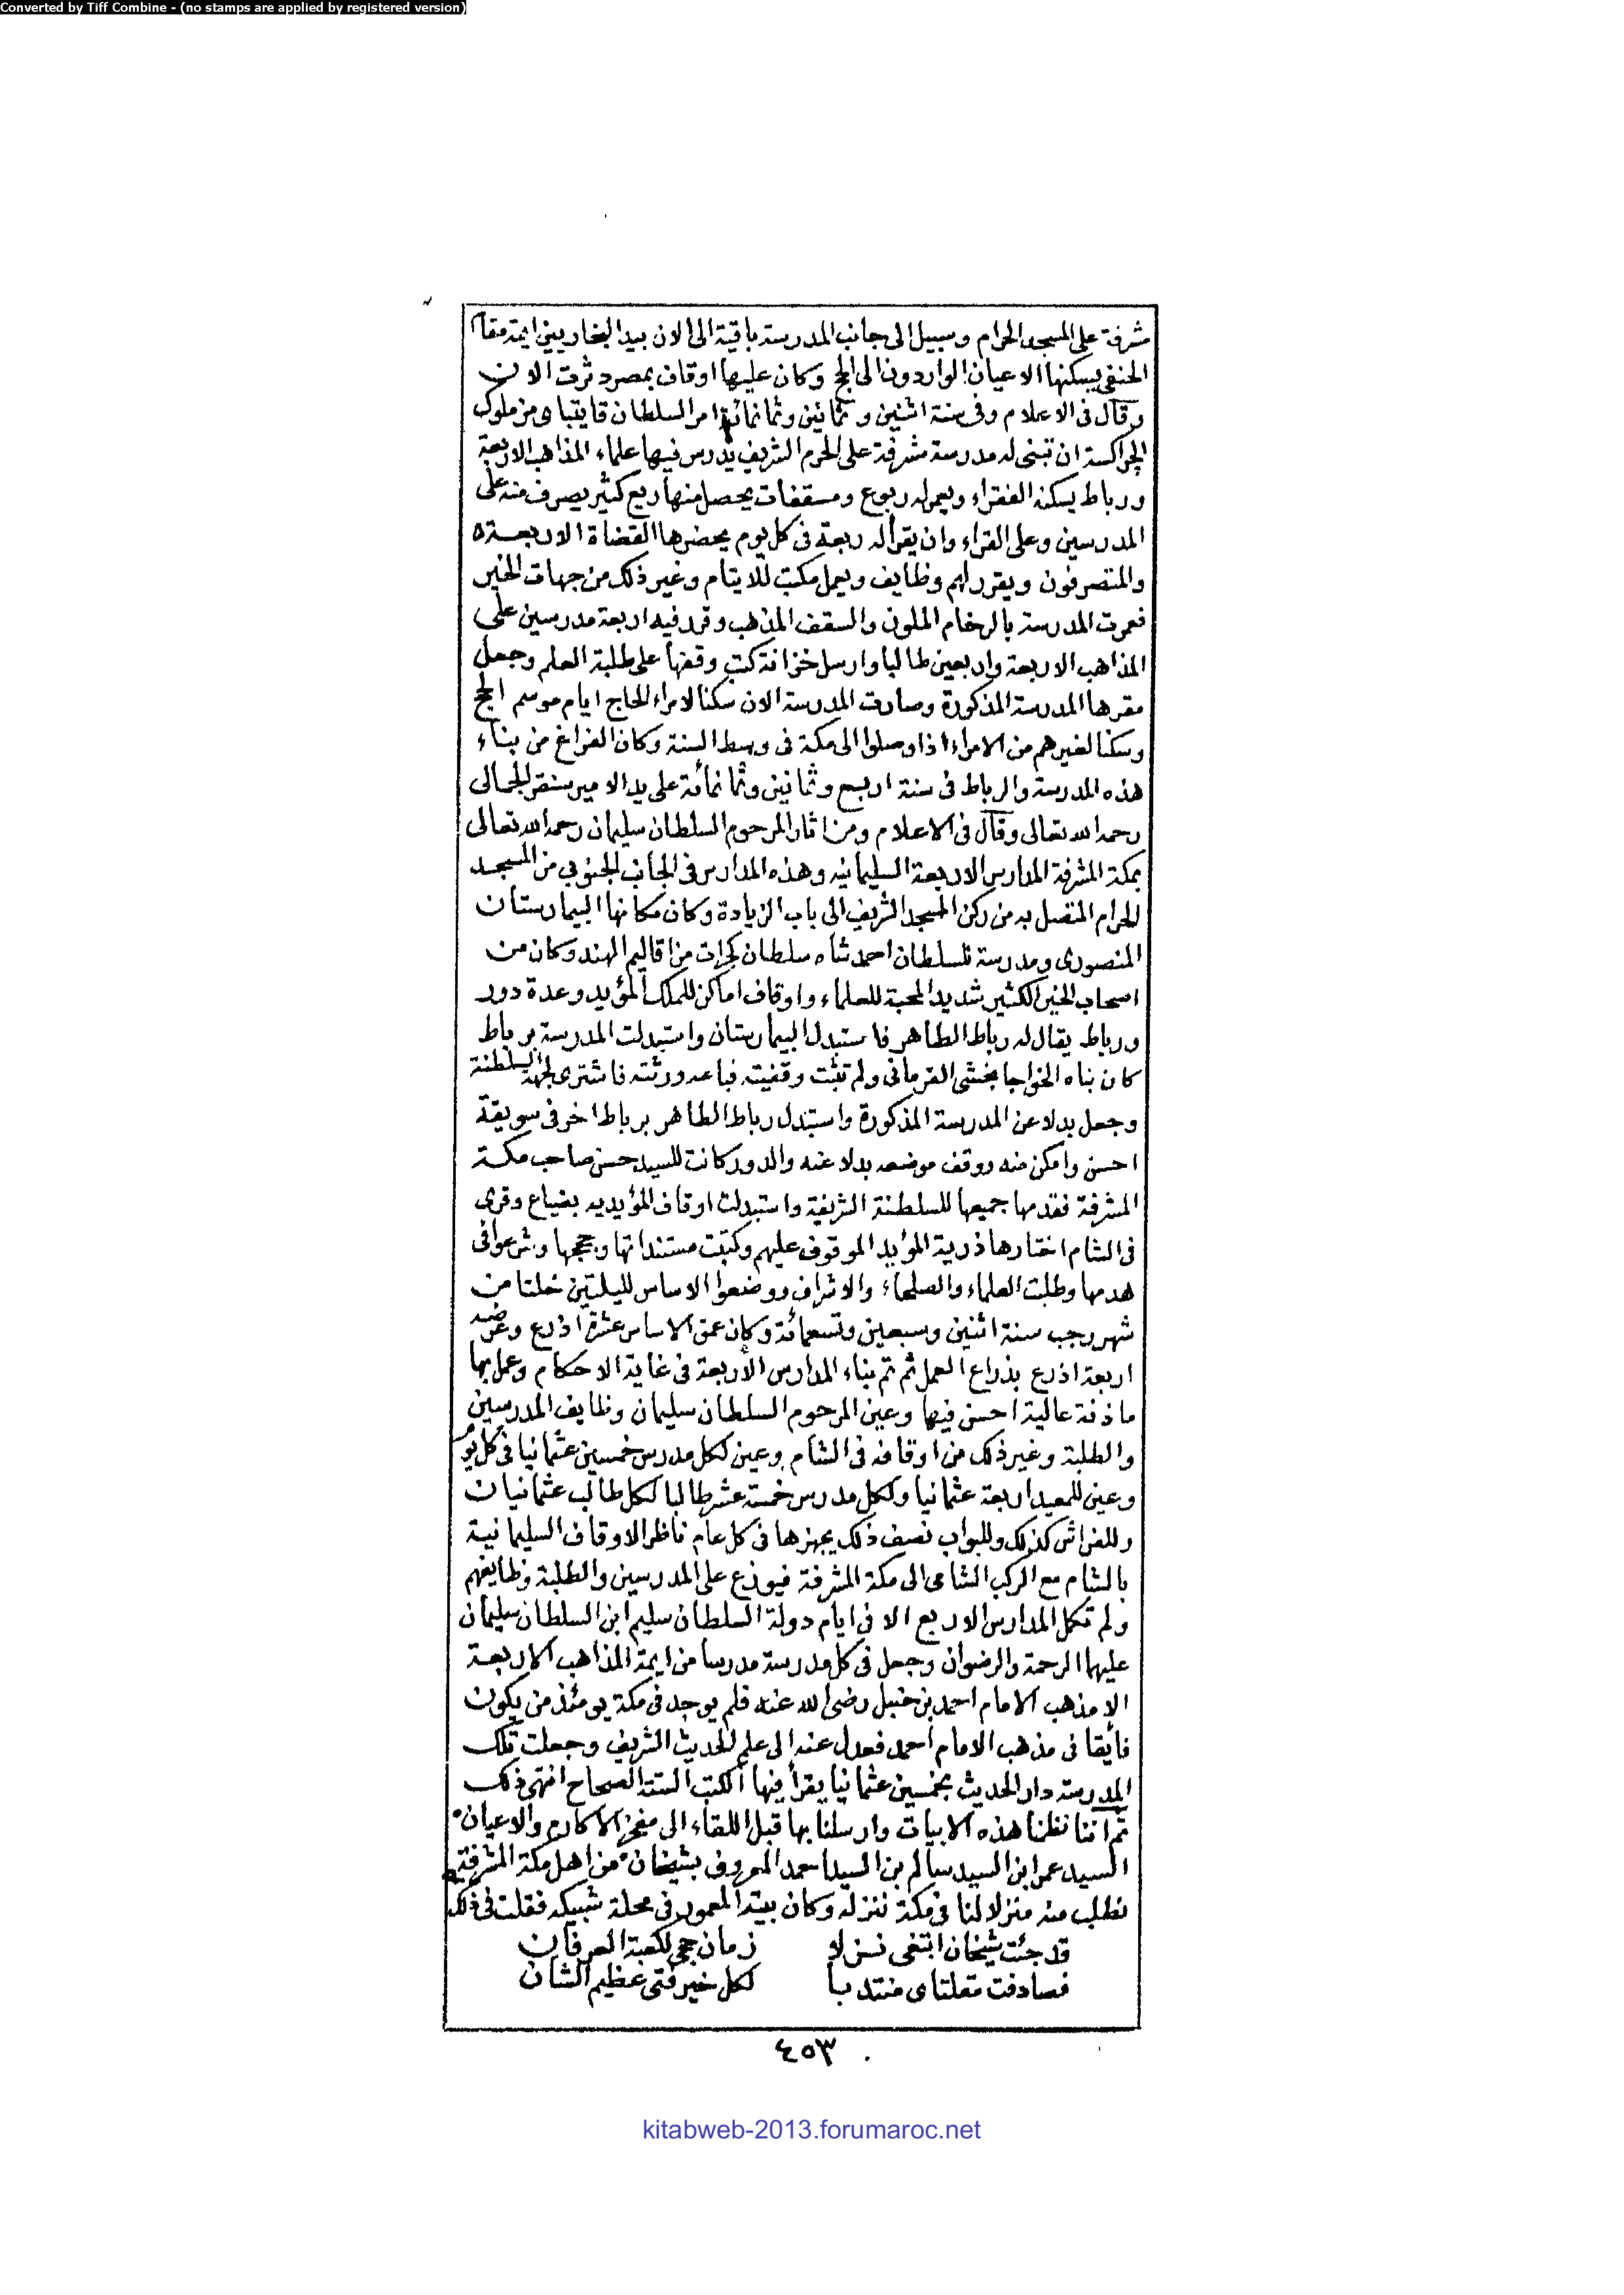 Converted by Tiff Combine - (no stamps are applied by registered version)
مشرفة على المسجد الحرام وسبيل الى جانب المدرسة باقية الى الان بيد البخاريين ايمة مقام
الحنفى يسكنها الاعيان الواردون الى الحج وكان عليها اوقاف بمصر دثرت الان
وقال فى الاعلام وفى سنة اثنين وثمانين وثمانمائة امر السلطان قايتباى من ملوك
الجراكسة ان تبنى له مدرسة مشرفة على الحرم الشريف يدرس فيها علماء المذاهب الاربعة
ورباط يسكنه الفقراء ويعمر له ربوع ومسقفات يحصل منها ريع كثير يصرف منه على
المدرسين وعلى القراء وان يقرأ له ربعة فى كل يوم يحضرها القضاة الاربعة
والمتصرفون ويقرر لهم وظايف ويعمل مكتب للايتام وغير ذلك من جهات الخير
فعمرت المدرسة بالرخام الملون والسقف المذهب وقرر فيه اربعة مدرسين على
المذاهب الاربعة واربعين طالبا وارسل خزانة كتب وقفها على طلبة العلم وجعل
مقرها المدرسة المذكورة وصارت المدرسة الان سكنا لامراء الحاج ايام موسم الحج
وسكنا لغيرهم من الامراء اذا وصلوا الى مكة فى وسط السنة وكان الفراغ من بناء
هذه المدرسة والرباط فى سنة اربع وثمانين وثمانمائة على يد الامير سنقر الجمالى
رحمه الله تعالى وقال فى الاعلام ومن اثار المرحوم السلطان سليمان رحمه الله تعالى
بمكة المشرفة المدارس الاربعة السليمانيه وهذه المدارس فى الجانب الجنوبي من المسجد
الحرام المتصل به من ركن المسجد الشريف الى باب الزيادة وكان مكانها البيمارستان
المنصورى ومدرسة للسلطان احمد شاه سلطان كجرات من اقاليم الهند وكان من
اصحاب الخير الكثير شديد المحبة للعلماء واوقاف اماكن للملك المؤيد وعدة دور
ورباط يقال له رباط الطاهر فاستبدل البيمارستان واستبدلت المدرسة برباط
كان بناه الخواجا بخشى القرمانى ولم تثبت وقفيته فباعه ورثته فاشترى لجهة السلطنة
وجعل بدلا عن المدرسة المذكورة واستبدل رباط الطاهر برباط اخر فى سويقة
احسن وامكن منه ووقف موضعه بدلا عنه والدور كانت للسيد حسن صاحب مكة
المشرفة فقدمها جميعها للسلطنة الشريفة واستبدلت اوقاف المؤيديه بضياع وقرى
فى الشام اختارها ذرية المؤيد الموقوف عليهم وكتبت مستنداتها وحججها وشرعوا فى
هدمها وطلبت العلماء والصلحاء والاشراف ووضعوا الاساس لليلتين خلتا من
شهر رجب سنة اثنين وسبعين وتسعمائة وكان عمق الاساس عشرة اذرع وعرضه
اربعة اذرع بذراع العمل ثم تم بناء المدارس الأربعة فى غاية الاحكام وعمل بها
ماذنة عالية احسن فيها وعين المرحوم السلطان سليمان وظايف المدرسين
والطلبة وغير ذلك من اوقافه فى الشام وعين لكل مدرس خمسين عثمانيا فى كل يوم
وعين للمعيد اربعة عثمانيا ولكل مدرس خمسة عشر طالبا لكل طالب عثمانيان
وللفراش كذلك وللبواب نصف ذلك يجهزها فى كل عام ناظر الاوقاف السليمانية
بالشام مع الركب الشامى الى مكة المشرفة فيوزع على المدرسين والطلبة وظايفهم
ولم تكمل المدارس الاربع الا فى ايام دولة السلطان سليم ابن السلطان سليمان
عليهما الرحمة والرضوان وجعل فى كل مدرسة مدرسا من ايمة المذاهب الاربعة
الا مذهب الامام احمد بن حنبل رضى الله عنه فلم يوجد فى مكة يومئذ من يكون
فائقا فى مذهب الامام احمد فعدل عنه الى علم الحديث الشريف وجعلت تلك
المدرسة دار الحديث بخمسين عثمانيا يقرأ فيها الكتب الستة الصحاح انتهى ذلك
ثم اننا نظمنا هذه الابيات وارسلنا بها قبل اللقاء الى مفخر الاكارم والاعيان
السيد عمر ابن السيد سالم بن السيد احمد المعروف بشيخان من اهل مكة المشرفة
نطلب منه منزلا لنا فى مكة ننزله وكان بيته المعمور فى محلة شبيكه فقلت فى ذلك
قد جئت شيخان ابتغى نزلا زمان حجى لكعبة العرفان
فصادفت مقلتاى منتدبا لكل خير فتى عظيم الشان
٤٥٣
kitabweb-2013.forumaroc.net